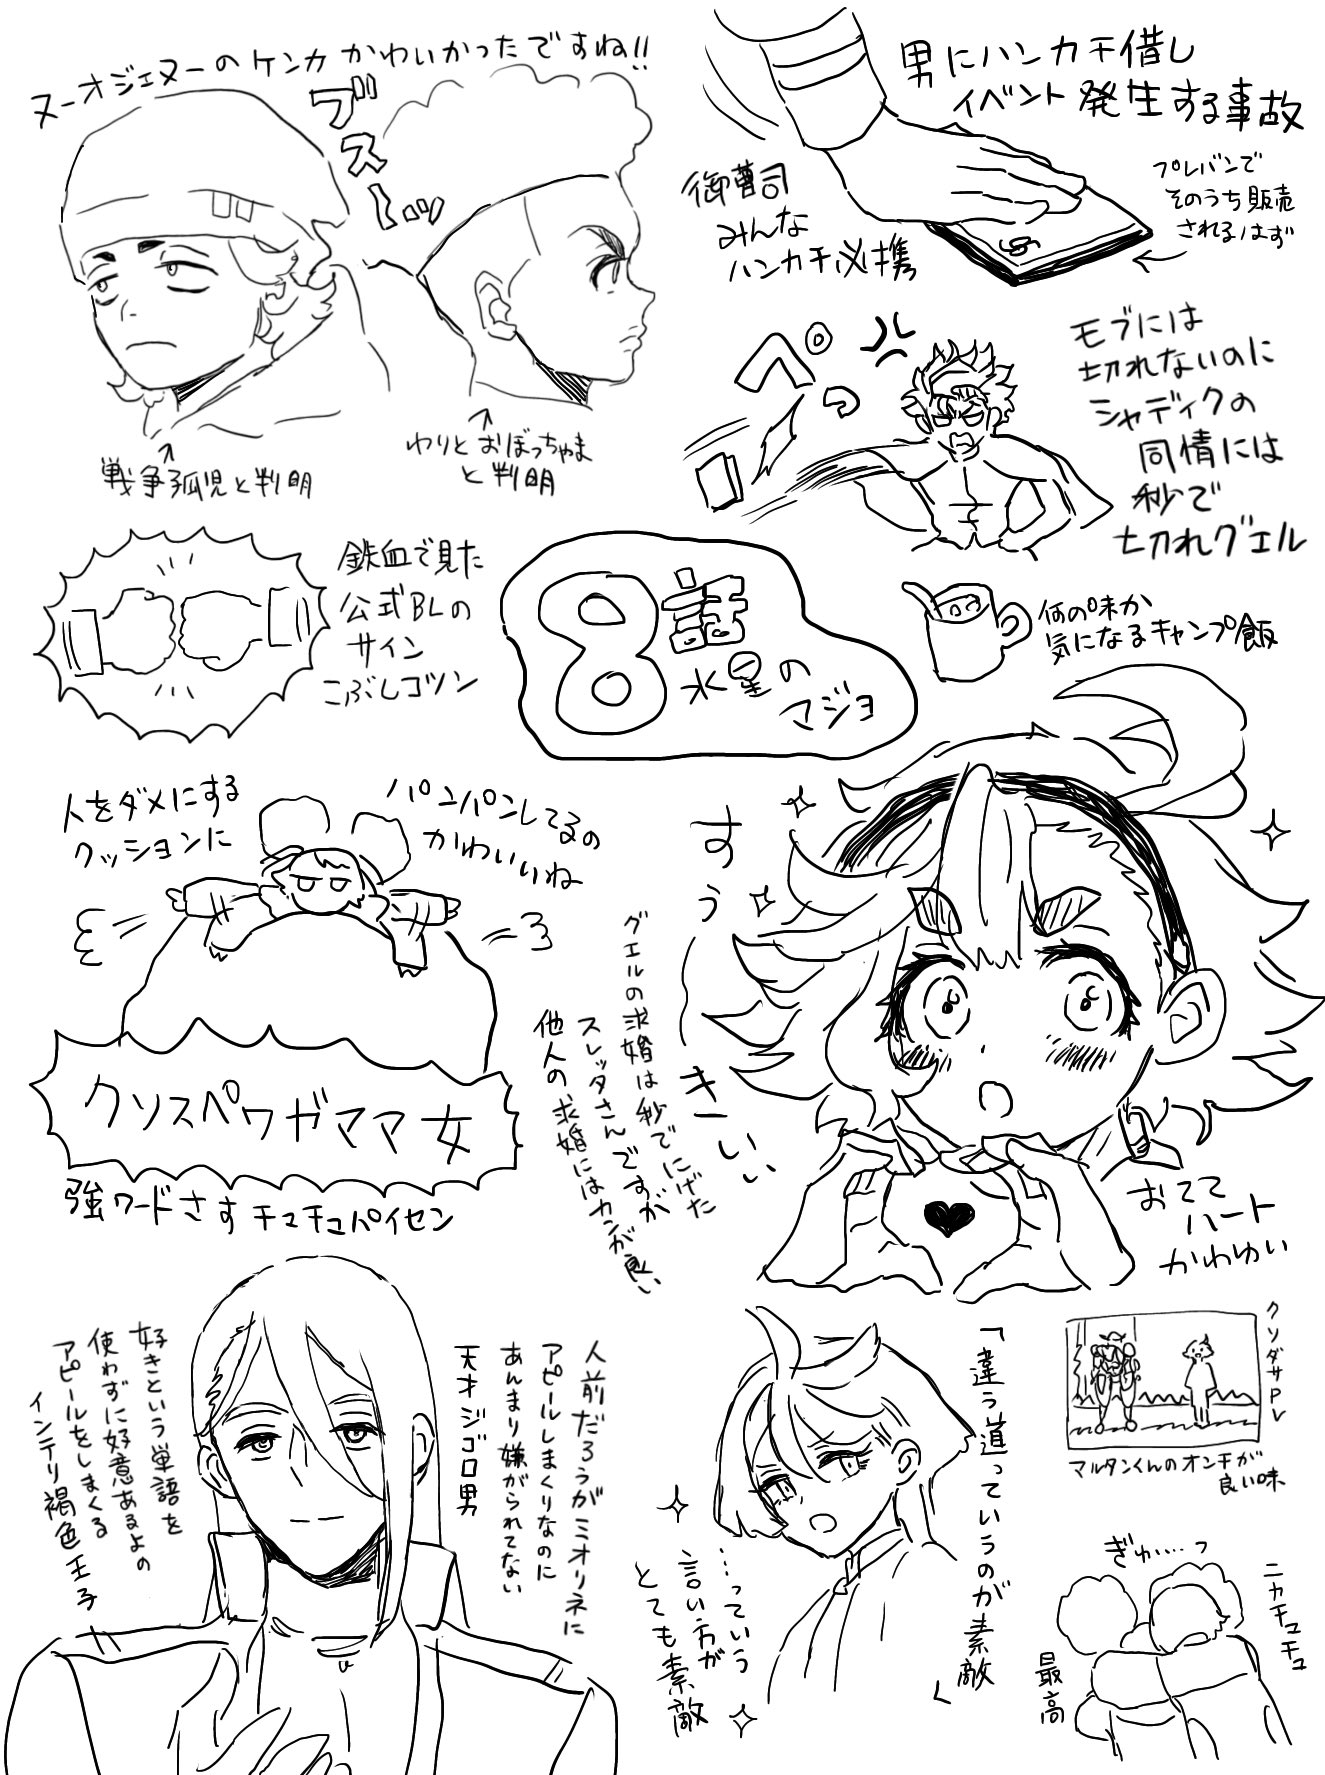 ヌーオジェヌーのケンカかわいかったですね!!
ブスーッ
戦争孤児と判明
わりとおぼっちゃま
と判明
男にハンカチ借し
イベント発生する事故
御曹司
みんな
ハンカチ必携
プレバンで
そのうち販売
されるはず
ぺっ
モブには
切れないのに
シャディクの
同情には
秒で
切れグエル
鉄血で見た
公式BLの
サイン
こぶしゴツン
8話
水星の
マジョ
何の味か
気になるキャンプ飯
人をダメにする
クッションに
パンパンしてるの
かわいいね
クソスペワガママ女
強ワードさすチュチュパイセン
すぅーきぃぃ
グエルの求婚は秒でにげた
スレッタさんですが
他人の求婚にはカンが良い
おてて
ハート
かわゆい
好きという単語を
使わずに好意あるよの
アピールをしまくる
インテリ褐色王子
人前だろうがミオリネに
アピールしまくりなのに
あんまり嫌がられてない
天才ジゴロ男
「違う道っていうのが素敵」
…っていう
言い方が
とても素敵
クソダサPV
マルタンくんのオンチが
良い味
ぎゅ……っ
ニカチュチュ
最高